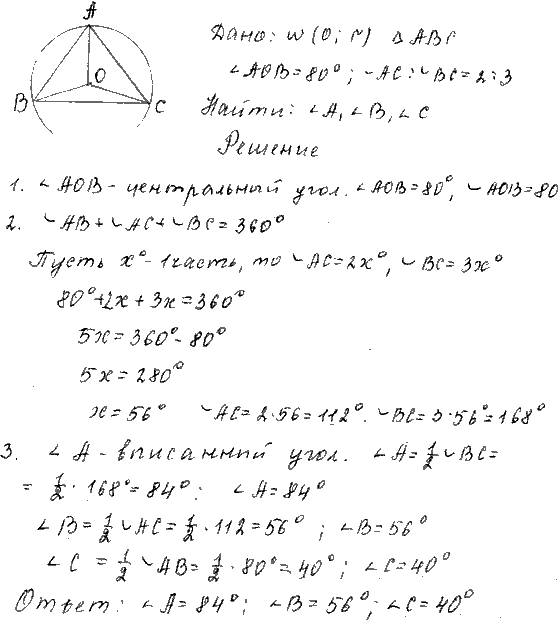 A
O
B
C
Дано: w (O; r) △ ABC
∠AOB=80°; ◡AC:◡BC=2:3
Найти: ∠A, ∠B, ∠C
Решение
1. ∠AOB - центральный угол. ∠AOB=80°, ◡AOB=80
2. ◡AB+◡AC+◡BC=360°
Пусть x° - 1 часть, то ◡AC=2x°, ◡BC=3x°
80°+2x+3x=360°
5x=360°-80°
5x=280°
x=56° ◡AC=2·56=112°. ◡BC=3·56°=168°
3. ∠A - вписанный угол. ∠A=½◡BC=
=½·168°=84°; ∠A=84°
∠B=½◡AC=½·112=56°; ∠B=56°
∠C=½◡AB=½·80°=40°; ∠C=40°
Ответ: ∠A=84°; ∠B=56°; ∠C=40°